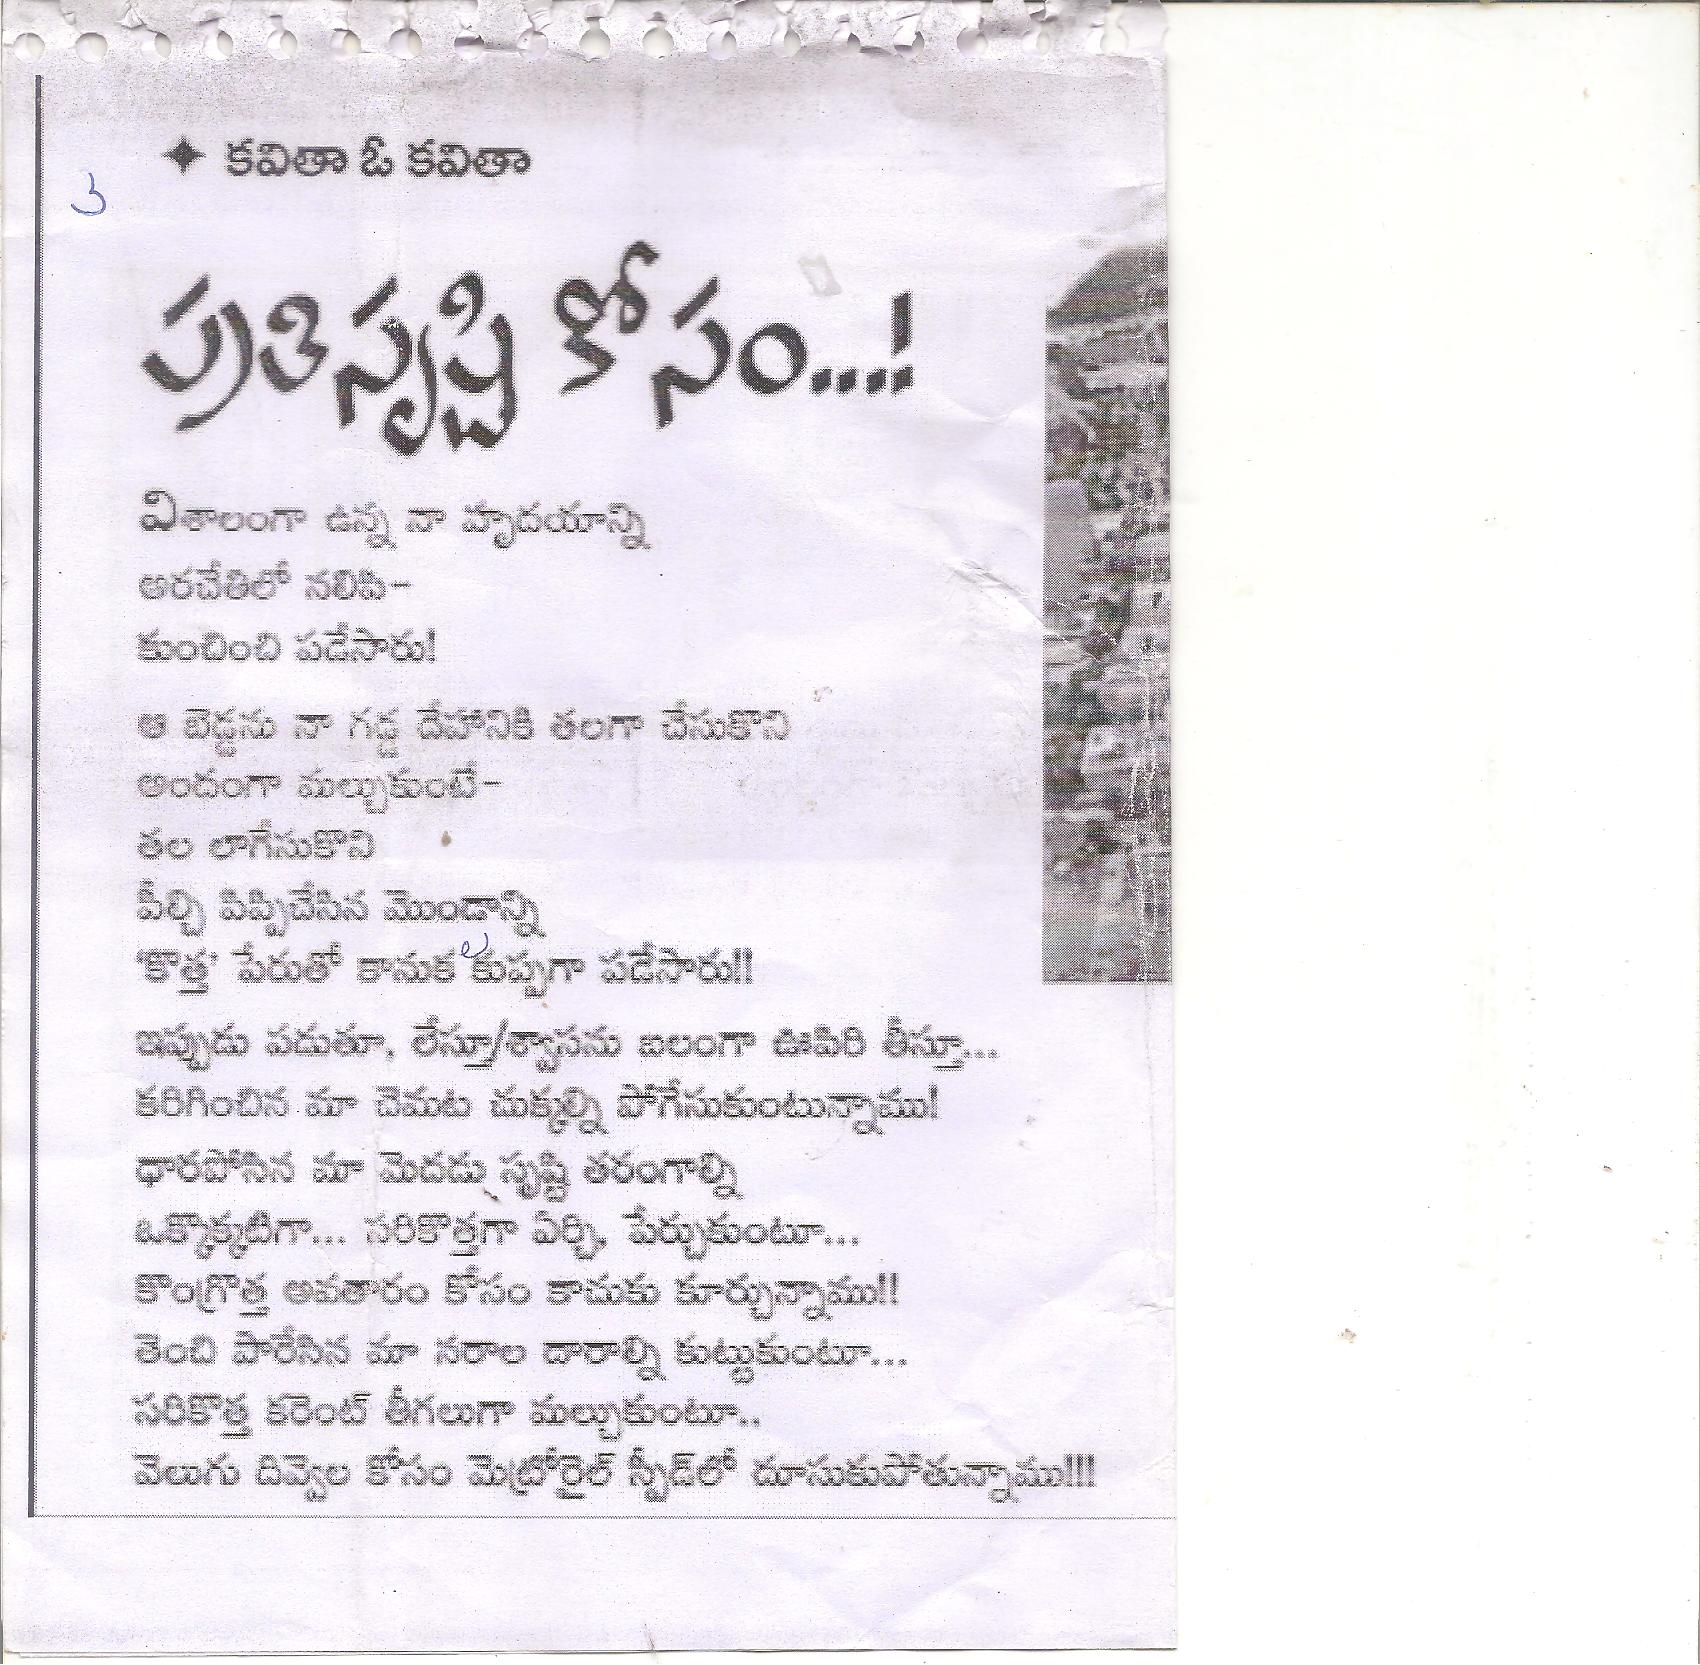 కవితా ఓ కవితా
ప్రతిసృష్టి కోసం...!
విశాలంగా ఉన్న నా హృదయాన్ని
అరచేతిలో నలిపి-
కుంచించి పడేసారు!
ఆ బెడ్డను నా గడ్డ దేహానికి తలగా చేసుకొని
అందంగా మల్చుకుంటే-
తల లాగేసుకొని
పీల్చి పిప్పిచేసిన మొండాన్ని
'కొత్త' పేరుతో కానుకల కుప్పగా పడేసారు!!
ఇప్పుడు పడుతూ, లేస్తూ/శ్వాసను బలంగా ఊపిరి తీస్తూ...
కరిగించిన మా చెమట చుక్కల్ని పోగేసుకుంటున్నాము!
ధారపోసిన మా మెదడు సృష్టి తరంగాల్ని
ఒక్కొక్కటిగా... సరికొత్తగా ఏర్చి, పేర్చుకుంటూ...
కొంగ్రొత్త అవతారం కోసం కాచుకు కూర్చున్నాము!!
తెంచి పారేసిన మా నరాల దారాల్ని కుట్టుకుంటూ...
సరికొత్త కరెంట్ తీగలుగా మల్చుకుంటూ..
వెలుగు దివ్వెల కోసం మెట్రోరైల్ స్పీడ్‌లో దూసుకుపోతున్నాము!!!